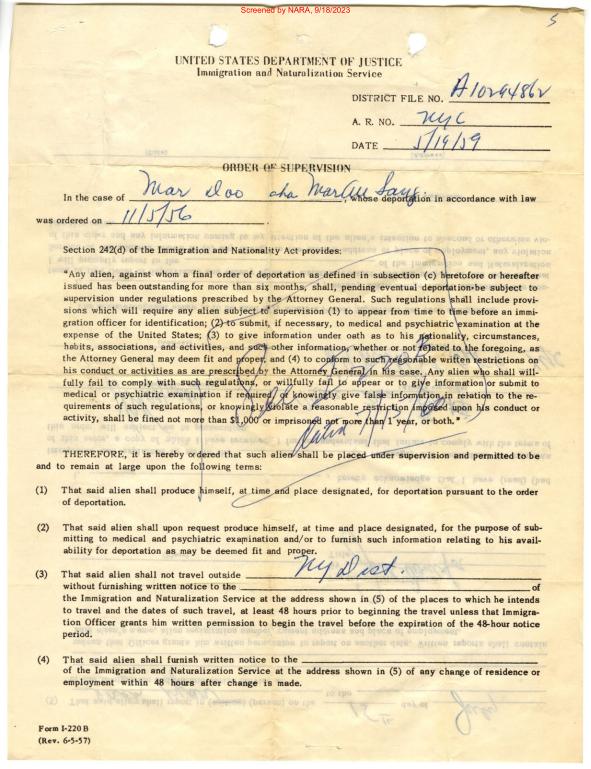 Screened by NARA, 9/18/2023
5
UNITED STATES DEPARTMENT OF JUSTICE
Immigration and Naturalization Service
DISTRICT FILE NO. A10294862
A. R. NO. NYC
DATE 5/19/59
ORDER OF SUPERVISION
In the case of Mar Doo aka Mar, whose deportation in accordance with law
was ordered on 11/5/56.
Section 242(d) of the Immigration and Nationality Act provides:
"Any alien, against whom a final order of deportation as defined in subsection (c) heretofore or hereafter
issued has been outstanding for more than six months, shall, pending eventual deportation be subject to
supervision under regulations prescribed by the Attorney General. Such regulations shall include provi-
sions which will require any alien subject to supervision (1) to appear from time to time before an immi-
gration officer for identification; (2) to submit, if necessary, to medical and psychiatric examination at the
expense of the United States; (3) to give information under oath as to his nationality, circumstances,
habits, associations, and activities, and such other information, whether or not related to the foregoing, as
the Attorney General may deem fit and proper; and (4) to conform to such reasonable written restrictions on
his conduct or activities as are prescribed by the Attorney General in his case. Any alien who shall will-
fully fail to comply with such regulations, or willfully fail to appear or to give information or submit to
medical or psychiatric examination if required, or knowingly give false information in relation to the re-
quirements of such regulations, or knowingly violate a reasonable restriction imposed upon his conduct or
activity, shall be fined not more than $1,000 or imprisoned not more than 1 year, or both."
See
dated 7/13/60
THEREFORE, it is hereby ordered that such alien shall be placed under supervision and permitted to be
and to remain at large upon the following terms:
(1) That said alien shall produce himself, at time and place designated, for deportation pursuant to the order
of deportation.
(2) That said alien shall upon request produce himself, at time and place designated, for the purpose of sub-
mitting to medical and psychiatric examination and/or to furnish such information relating to his avail-
ability for deportation as may be deemed fit and proper.
(3) That said alien shall not travel outside NY Dist.
without furnishing written notice to the of
the Immigration and Naturalization Service at the address shown in (5) of the places to which he intends
to travel and the dates of such travel, at least 48 hours prior to beginning the travel unless that Immigra-
tion Officer grants him written permission to begin the travel before the expiration of the 48-hour notice
period.
(4) That said alien shall furnish written notice to the
of the Immigration and Naturalization Service at the address shown in (5) of any change of residence or
employment within 48 hours after change is made.
Form I-220 B
(Rev. 6-5-57)